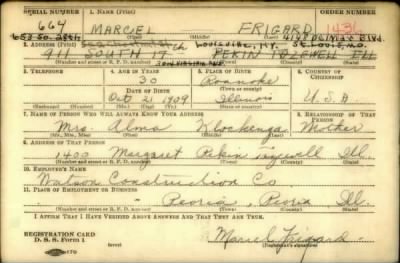 SERIAL NUMBER 1. NAME (Print) ORDER NUMBER
664 MARCIEL FRIGARD 1436
(First) (Middle) (Last)
653 So. 28th Louisville, Ky. St. Louis, Mo.
2. ADDRESS (Print)
911 SOUTH 17th PEKIN TAZEWELL ILL
(Number and street or R. F. D. number) (Town) (County) (State)
3. TELEPHONE 4. AGE IN YEARS 5. PLACE OF BIRTH 6. COUNTRY OF CITIZENSHIP
30 Roanoke
DATE OF BIRTH (Town or county)
Oct 21 1909 Illinois U.S.A.
(Exchange) (No.) (Mo.) (Day) (Yr.) (State or country)
7. NAME OF PERSON WHO WILL ALWAYS KNOW YOUR ADDRESS 8. RELATIONSHIP OF THAT PERSON
Mrs. Alma Klockenga Mother
(Mr., Mrs., Miss) (First) (Middle) (Last)
9. ADDRESS OF THAT PERSON
1400 Margaret Pekin Tazewell Ill.
(Number and street or R. F. D. number) (Town) (County) (State)
10. EMPLOYER'S NAME
Watson Construction Co
11. PLACE OF EMPLOYMENT OR BUSINESS
Peoria, Peoria Ill.
(Number and street or R. F. D. number) (Town) (County) (State)
I AFFIRM THAT I HAVE VERIFIED ABOVE ANSWERS AND THAT THEY ARE TRUE.
REGISTRATION CARD
D. S. S. Form 1 (over) Marciel Frigard
(Registrant's signature)